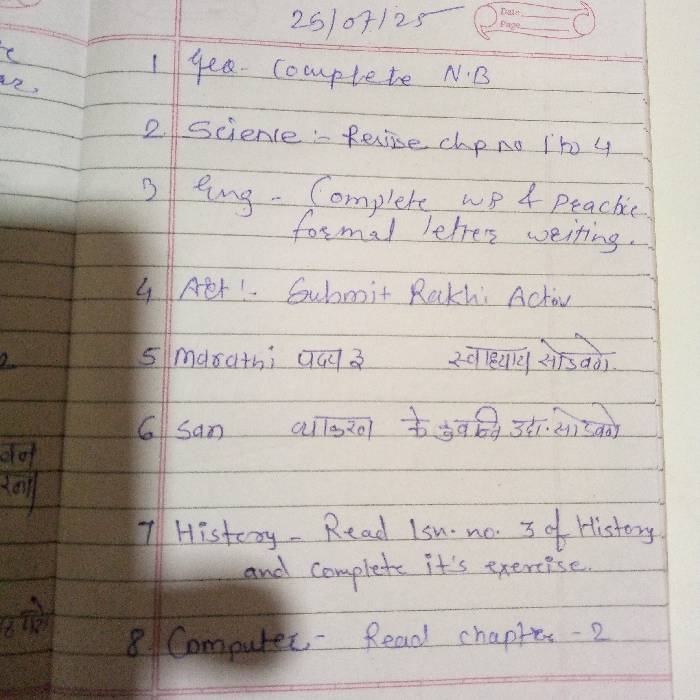 25/07/25
Date
Page
1 Geo- Complete N.B
2 Science :- Revise chp no 1 to 4
3 Eng - Complete WB & practice
formal letter writing.
4 Art :- Submit Rakhi Activ
5 Marathi पद्य इ स्वाध्याय सोडवणे.
6 San व्याकरण के उदा. सोडवणे
7 History - Read lsn. no. 3 of History
and complete it's exercise.
8 Computer,- Read chapter - 2